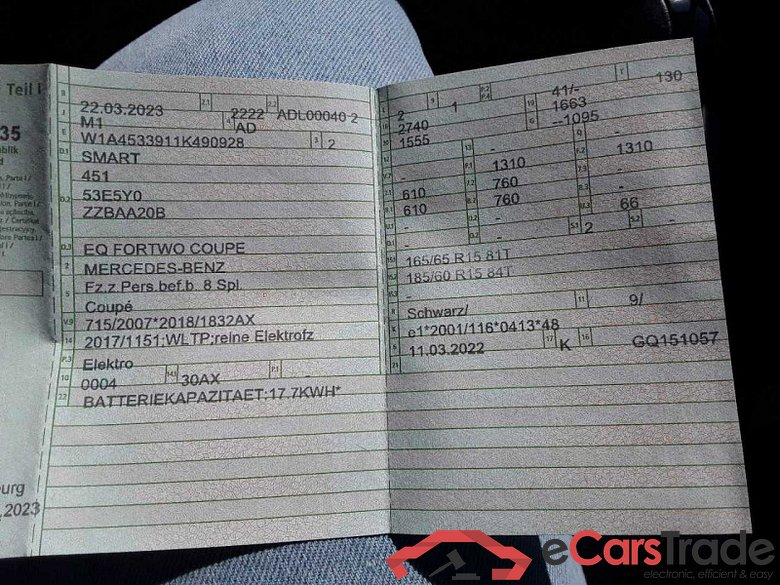 Teil I
35
blik
d
B
22.03.2023
2.1
2222
2.2
ADL00040 2
J
M1
4
AD
E
W1A4533911K490928
3
2
D.1
SMART
451
D.2
53E5Y0
ZZBAA20B
D.3
EQ FORTWO COUPE
2
MERCEDES-BENZ
5
Fz.z.Pers.bef.b. 8 Spl.
Coupé
V.9
715/2007*2018/1832AX
14
2017/1151;WLTP;reine Elektrofz
P.3
Elektro
10
0004
14.1
30AX
P.1
-
22
BATTERIEKAPAZITAET:17.7KWH*
2
9
1
P.2
P.4
41/-
T
130
18
2740
19
1663
20
1555
G
--1095
12
-
13
-
Q
-
1310
F.2
1310
7.1
610
760
8.1
610
760
U.1
-
-
U.3
66
O.1
-
-
S.1
2
S.2
-
15.1
165/65 R15 81T
15.2
185/60 R15 84T
15.3
-
R
Schwarz/
11
9/
K
e1*2001/116*0413*48
6
11.03.2022
17
K
16
GQ151057
21
burg
.2023
eCarsTrade
electronic, efficient & easy